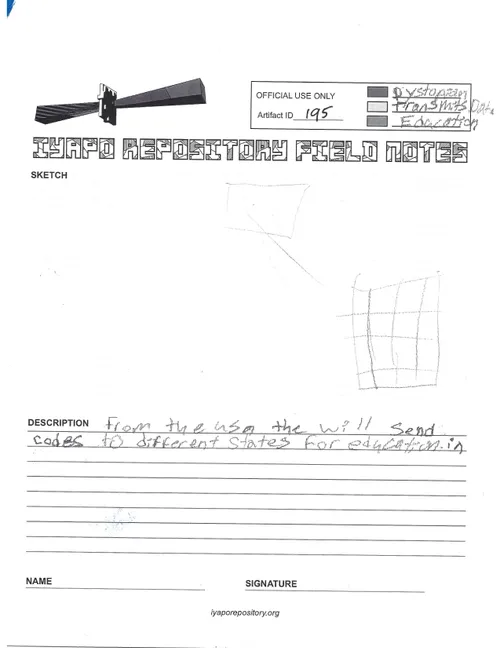 OFFICIAL USE ONLY
Artifact ID 195
Dystopian
Transmits Data
Education
IYAPO REPOSITORY FIELD NOTES
SKETCH
DESCRIPTION From the usa the will Send
codes to different States For education.in
NAME
SIGNATURE
iyaporepository.org